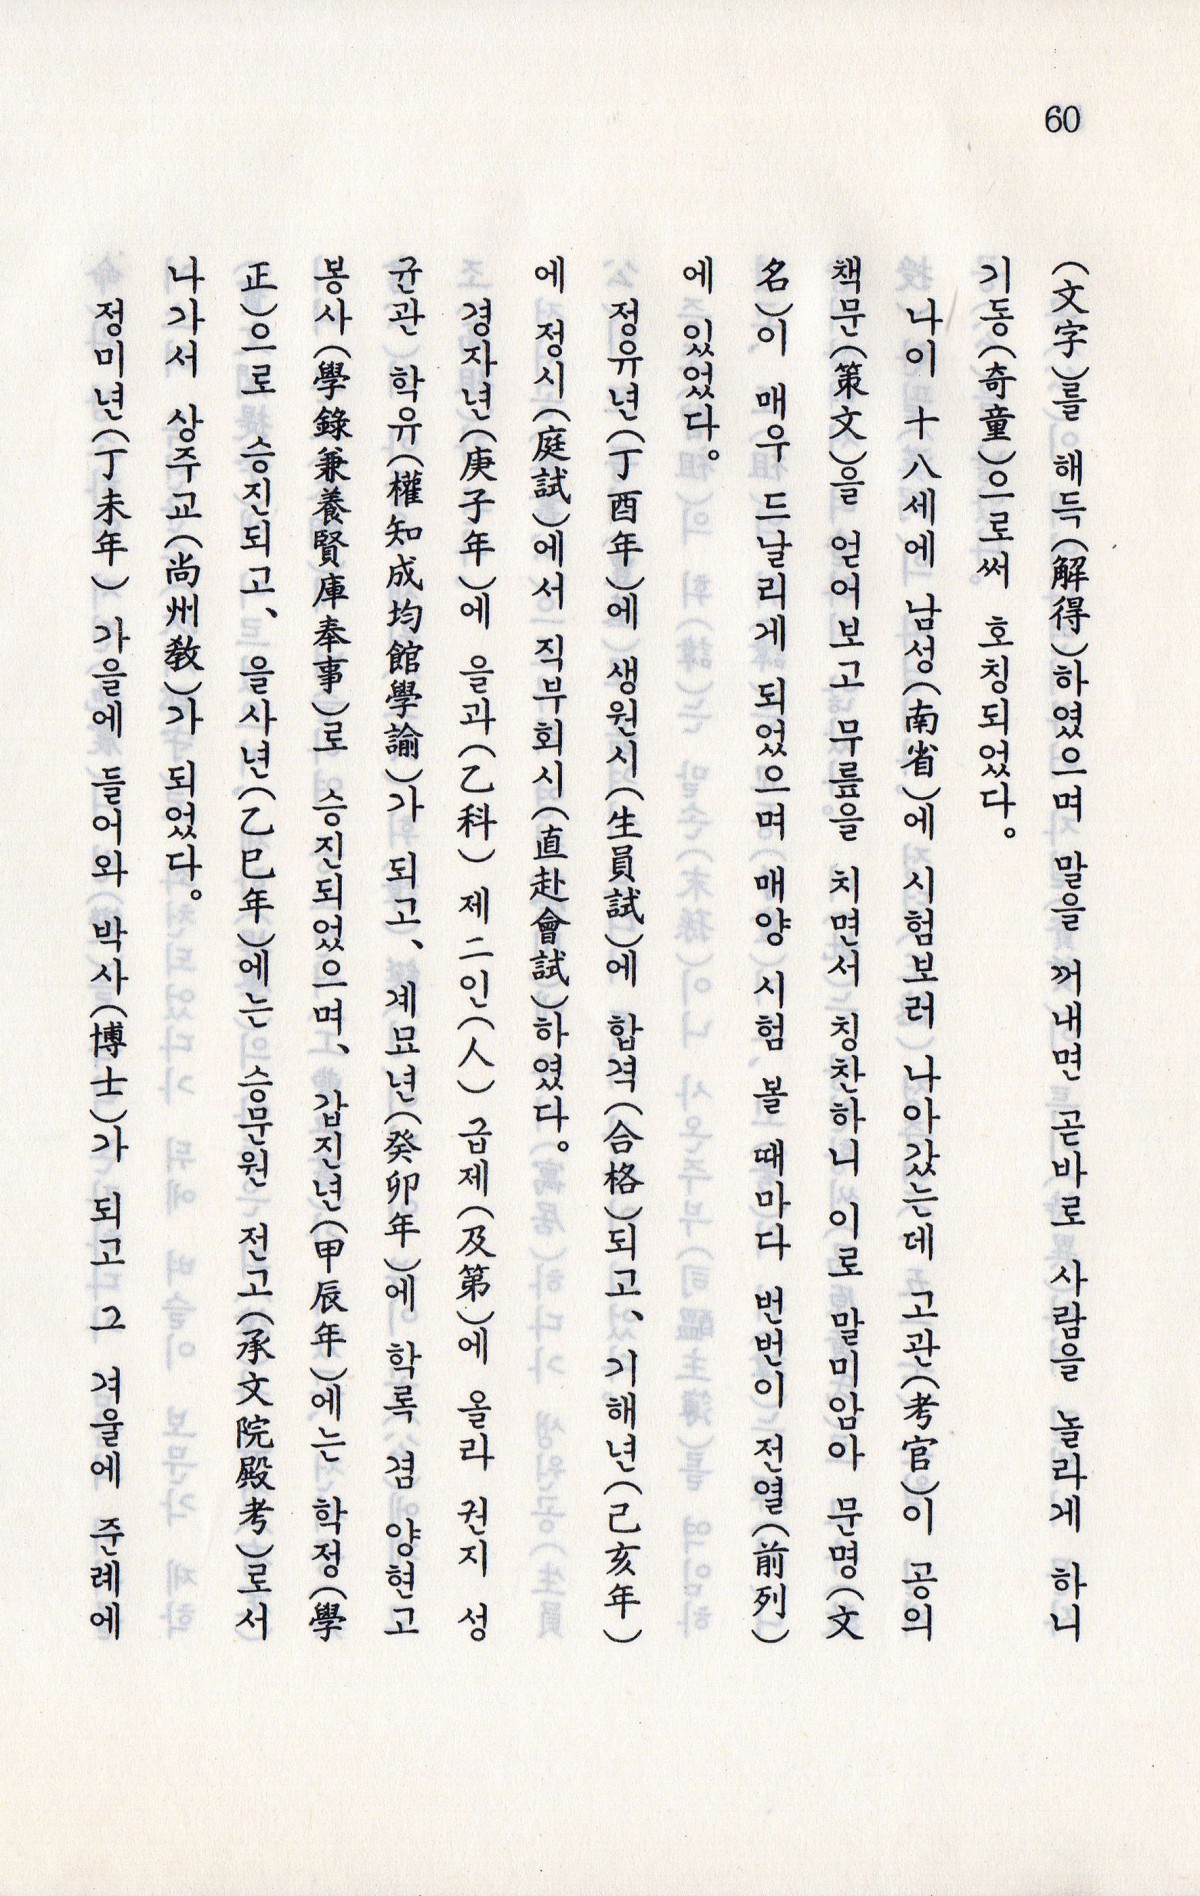 60
(文字)를 해득(解得)하였으며 말을 꺼내면 곧바로 사람을 놀라게 하니
기동(奇童)으로써 호칭되었다。
나이 十八세에 남성(南省)에 시험보러 나아갔는데 고관(考官)이 공의
책문(策文)을 얻어보고 무릎을 치면서 칭찬하니 이로 말미암아 문명(文
名)이 매우 드날리게 되었으며 매양 시험 볼 때마다 번번이 전열(前列)
에 있었다。
정유년(丁酉年)에 생원시(生員試)에 합격(合格)되고、기해년(己亥年)
에 정시(庭試)에서 직부회시(直赴會試)하였다。
경자년(庚子年)에 을과(乙科) 제二인(人) 급제(及第)에 올라 권지 성
균관 학유(權知成均館學諭)가 되고、계묘년(癸卯年)에 학록 겸 양현고
봉사(學錄兼養賢庫奉事)로 승진되었으며、갑진년(甲辰年)에는 학정(學
正)으로 승진되고、을사년(乙巳年)에는 승문원 전고(承文院殿考)로서
나가서 상주교(尚州敎)가 되었다。
정미년(丁未年) 가을에 들어와 박사(博士)가 되고 그 겨울에 준례에